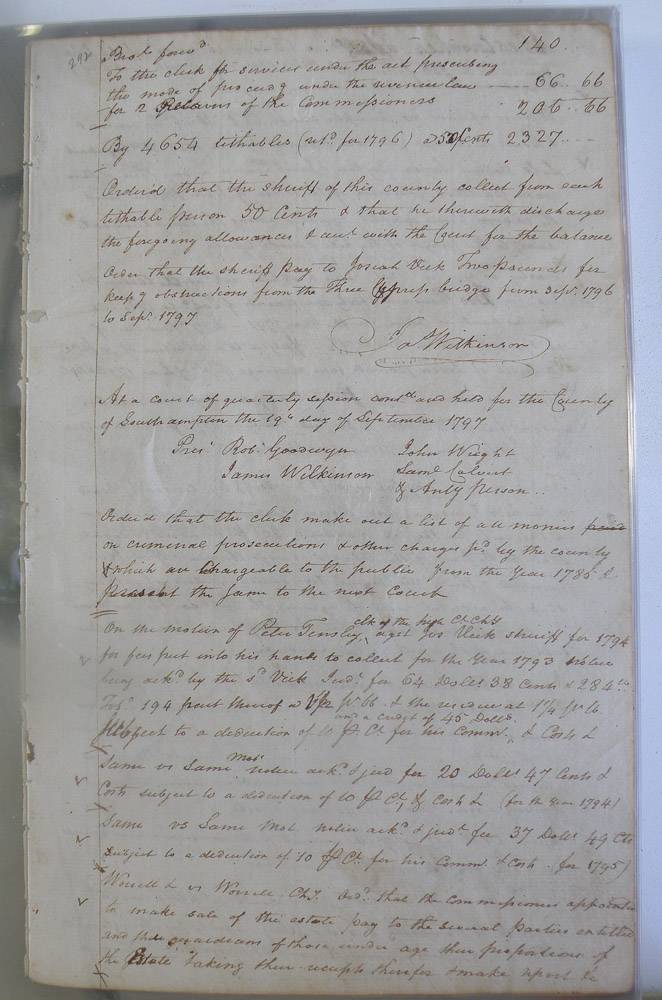 292
Bro.t forw.d 140.
To the clerk for services under the act prescribing
the mode of proceedg under the revenue law 66. 66
for 2 Returns of the Commissioners 206. 66
By 4654 tithables (ret.d for 1796) a 50 Cents 2327..
Ordered that the sheriff of this county collect from each
tithable person 50 Cents & that he therewith discharge
the foregoing allowances & acct. with the Court for the balance
Order that the sheriff pay to Josiah Vick Two pounds for
keepg obstructions from the Three Cypress bridge from Sept. 1796
to Sept. 1797
Ja.s Wilkinson
At a court of quarterly session cont.d and held for the County
of Southampton the 19th day of September 1797
Pres.t Rob.t Goodwyn John Wright
James Wilkinson Saml. Calvert
& Anty Person..
Ordered that the clerk make out a list of all monies paid
on criminal prosecutions & other charges pd. by the county
& which are Chargeable to the public from the Year 1785 &
present the same to the next Court
On the motion of Peter Tinsley clk of the high Ct. Chy agst Jos Vick sheriff for 1794
for fees put into his hands to collect for the Year 1793 notice
being ack.d by the s.d Vick Jud.t for 64 Dolls 38 Cents & 284
Tob.o 194 part thereof a pr lb. & the residue at 1¼ pr lb
subject to a deduction of 10 pr Ct. for his Comm.n and a credit of 45 Dolls. & Costs &
Same vs Same Mot. notice ack.d & jud for 20 Dolls 47 Cents &
Costs subject to a deduction of 10 pr Ct, & Costs & (for the Year 1794)
Same vs Same Mot. notice ack.d & jud.t for 37 Dolls 49 Cts
subject to a deduction of 10 pr Ct. for his Comm.n & Costs. for 1795)
Worrell & vs Worrell Chy. Ord.d that the Commissioners appointed
to make sale of the estate pay to the several Parties entitled
and the guardians of those under age their proportions of
the Estate taking their receipts therefor & make report &c